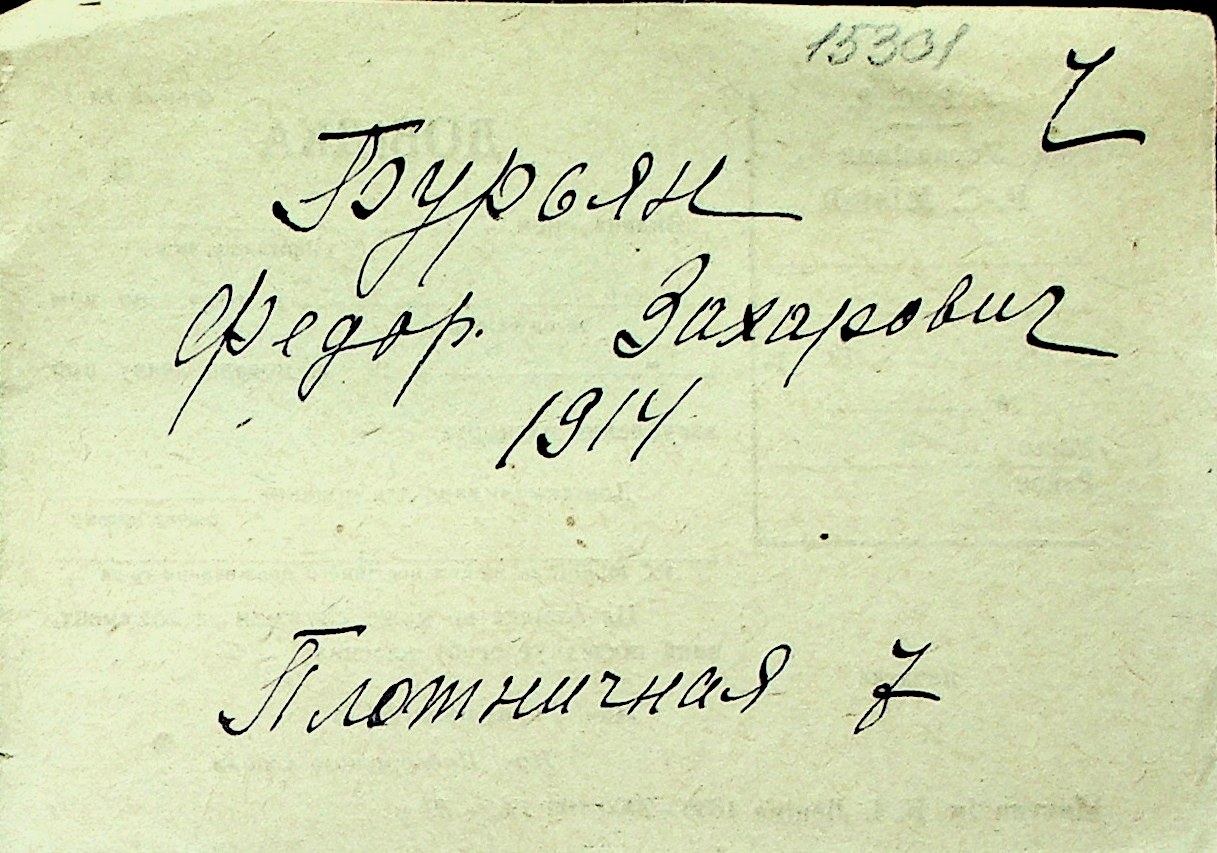 15301
7
Бурьян
Федор Захарович
1914
Плотничная 7